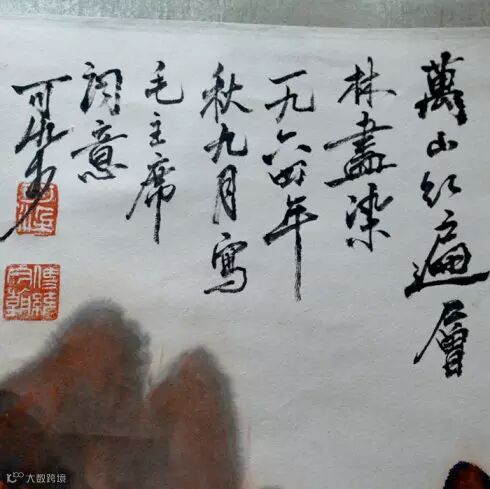 萬山红遍層
林盡染
一九六四年
秋九月寫
毛主席
詞意
可染
大数跨境